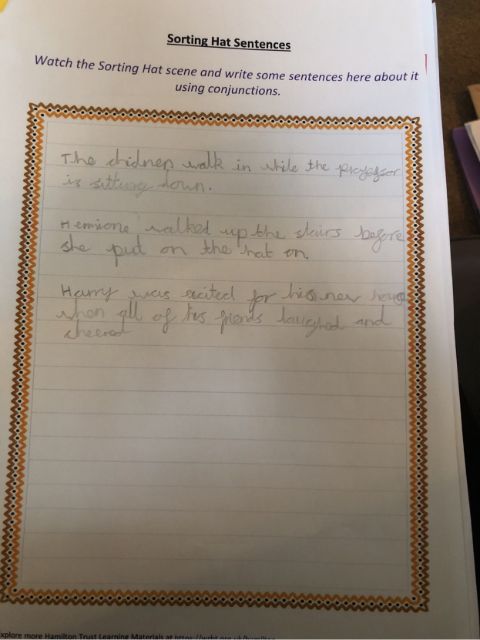 Sorting Hat Sentences
Watch the Sorting Hat scene and write some sentences here about it
using conjunctions.
The chidnen walk in while the professor
is sitting down.
Hemione walked up the stairs before
she put on the hat on.
Harry was excited for his new house
when all of his friends laughed and
cheered
xplore more Hamilton Trust Learning Materials at